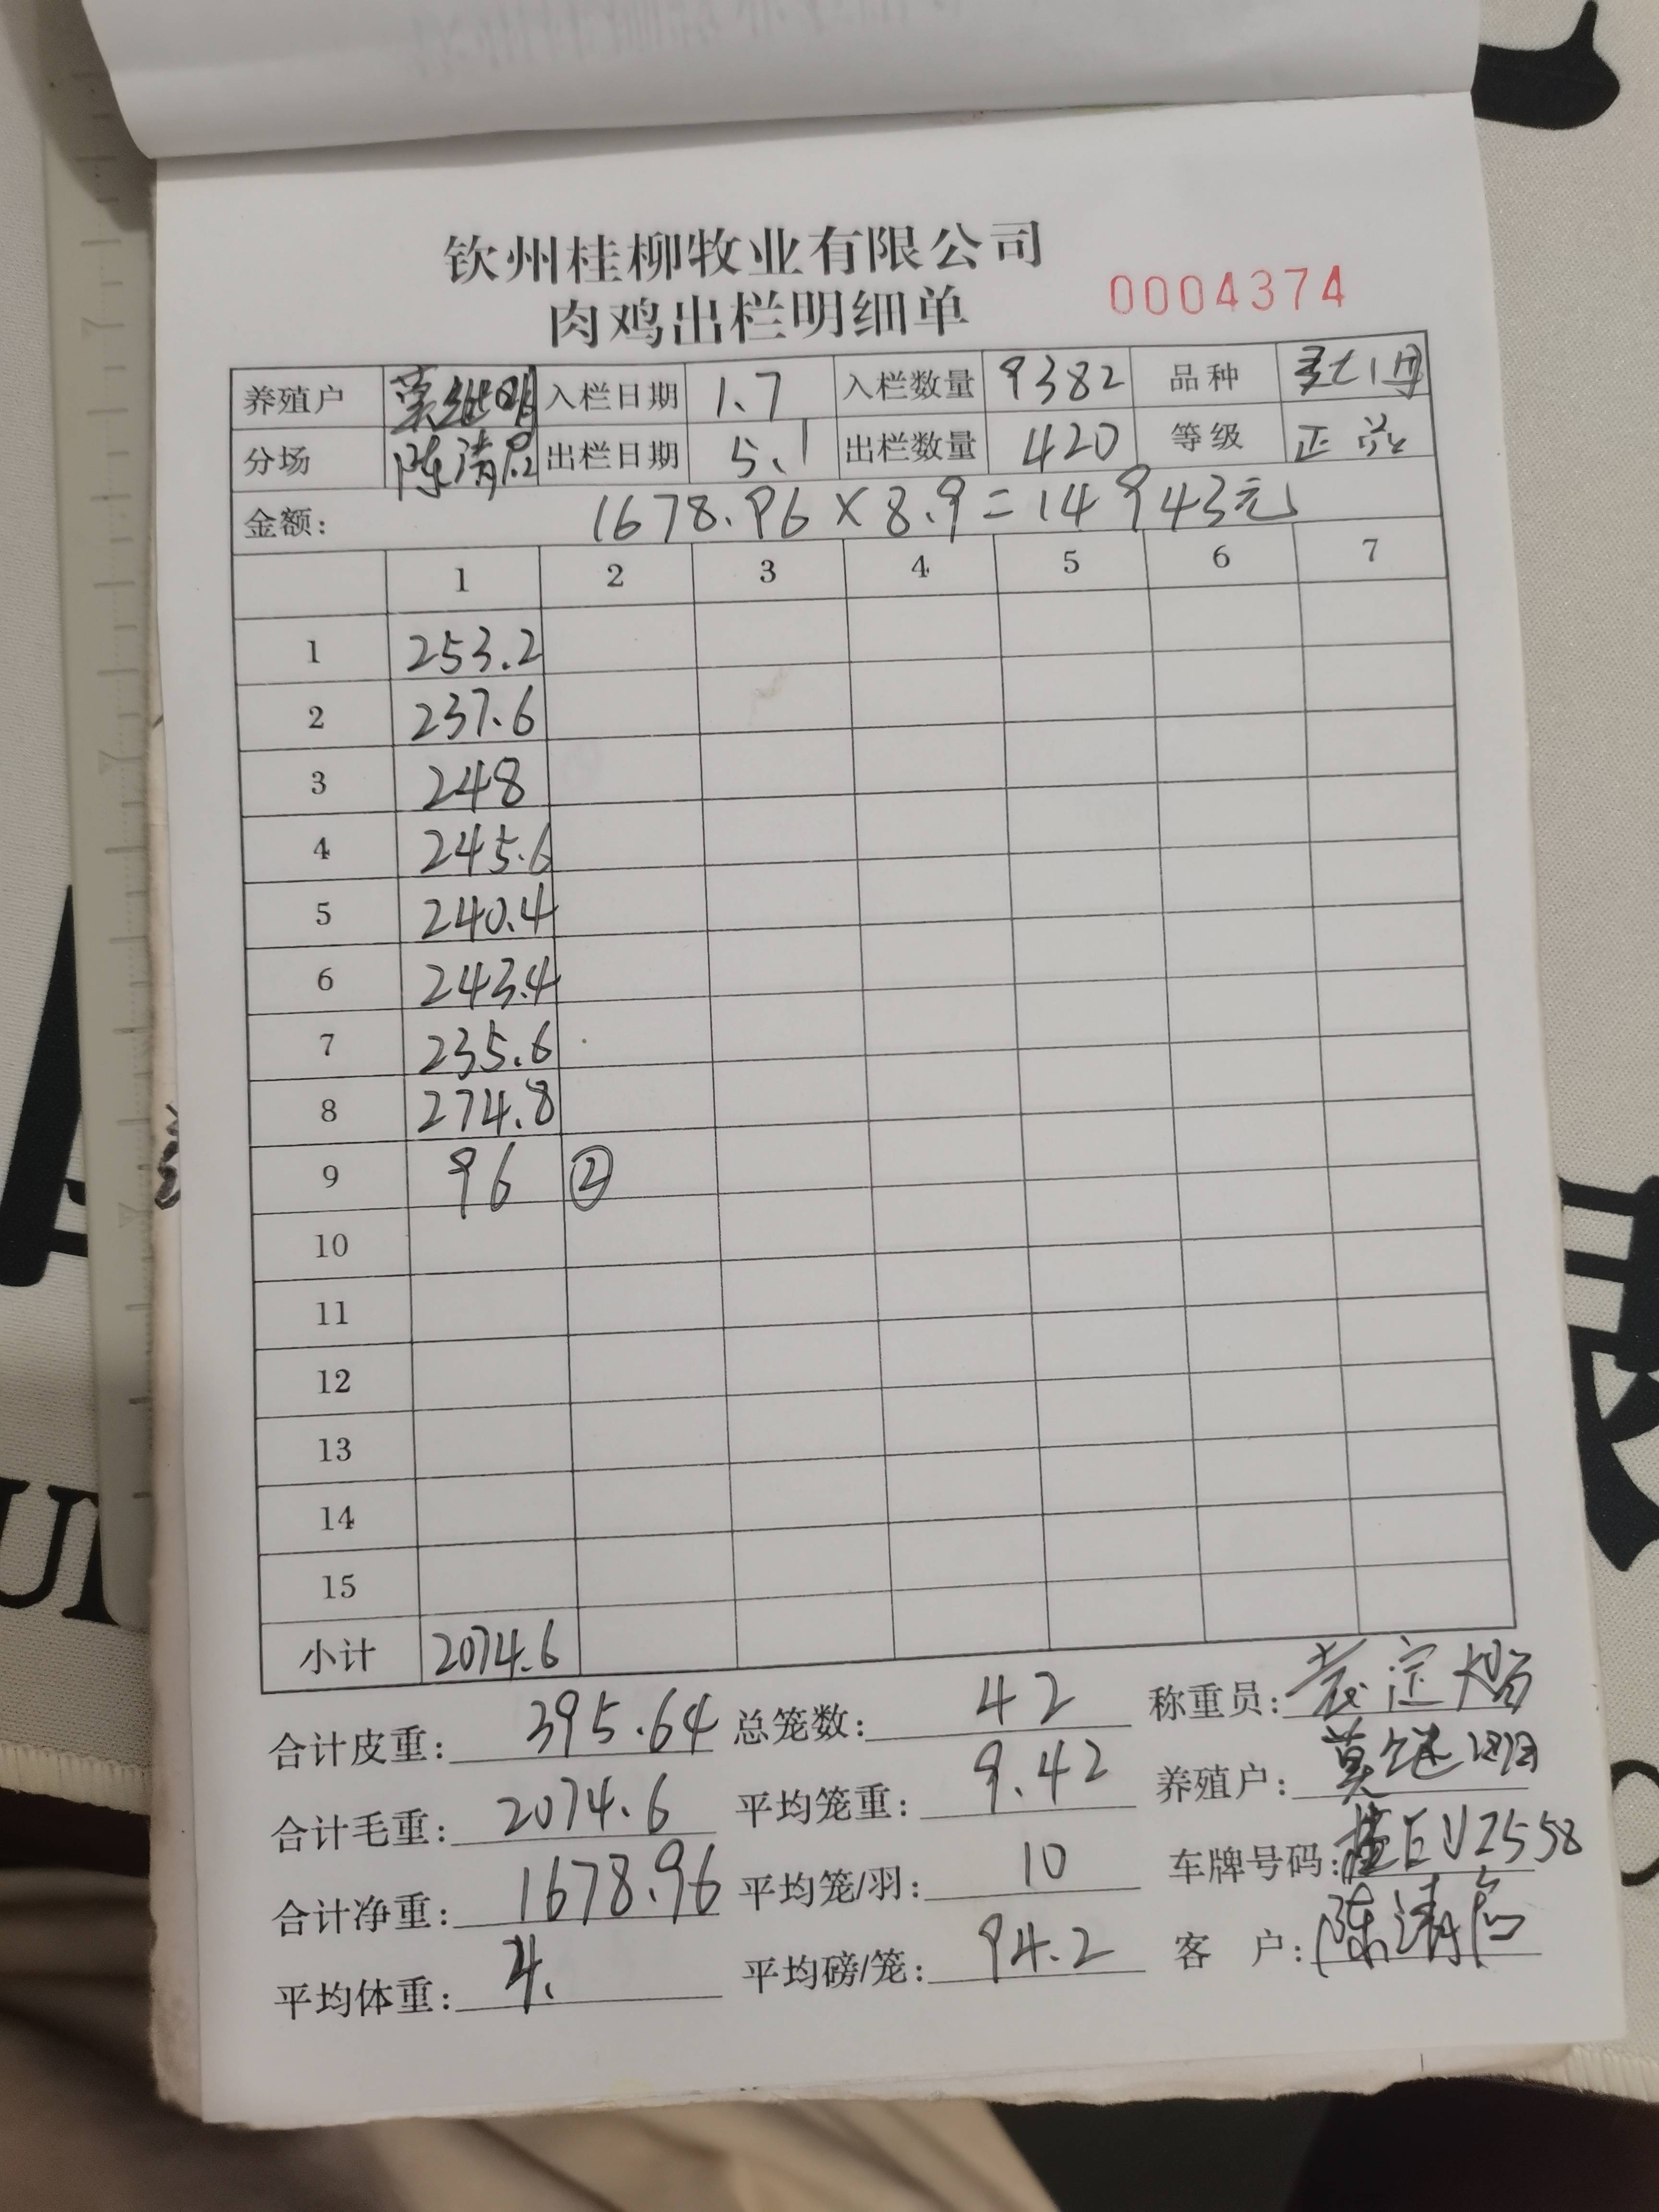 钦州桂柳牧业有限公司
肉鸡出栏明细单 0004374
养殖户 莫继明 入栏日期 1.7 入栏数量 9382 品种
分场 陈清 出栏日期 5.1 出栏数量 420 等级 正品
金额: 1678.96×8.9=14943元
1 2 3 4 5 6 7
1 253.2
2 237.6
3 248
4 245.6
5 240.4
6 243.4
7 235.6
8 274.8
9 96 ②
10
11
12
13
14
15
小计 2074.6
合计皮重: 395.64 总笼数: 42 称重员:
合计毛重: 2074.6 平均笼重: 9.42 养殖户: 莫继明
合计净重: 1678.96 平均笼/羽: 10 车牌号码: 桂EV2558
平均体重: 4. 平均磅/笼: 94.2 客户: 陈清